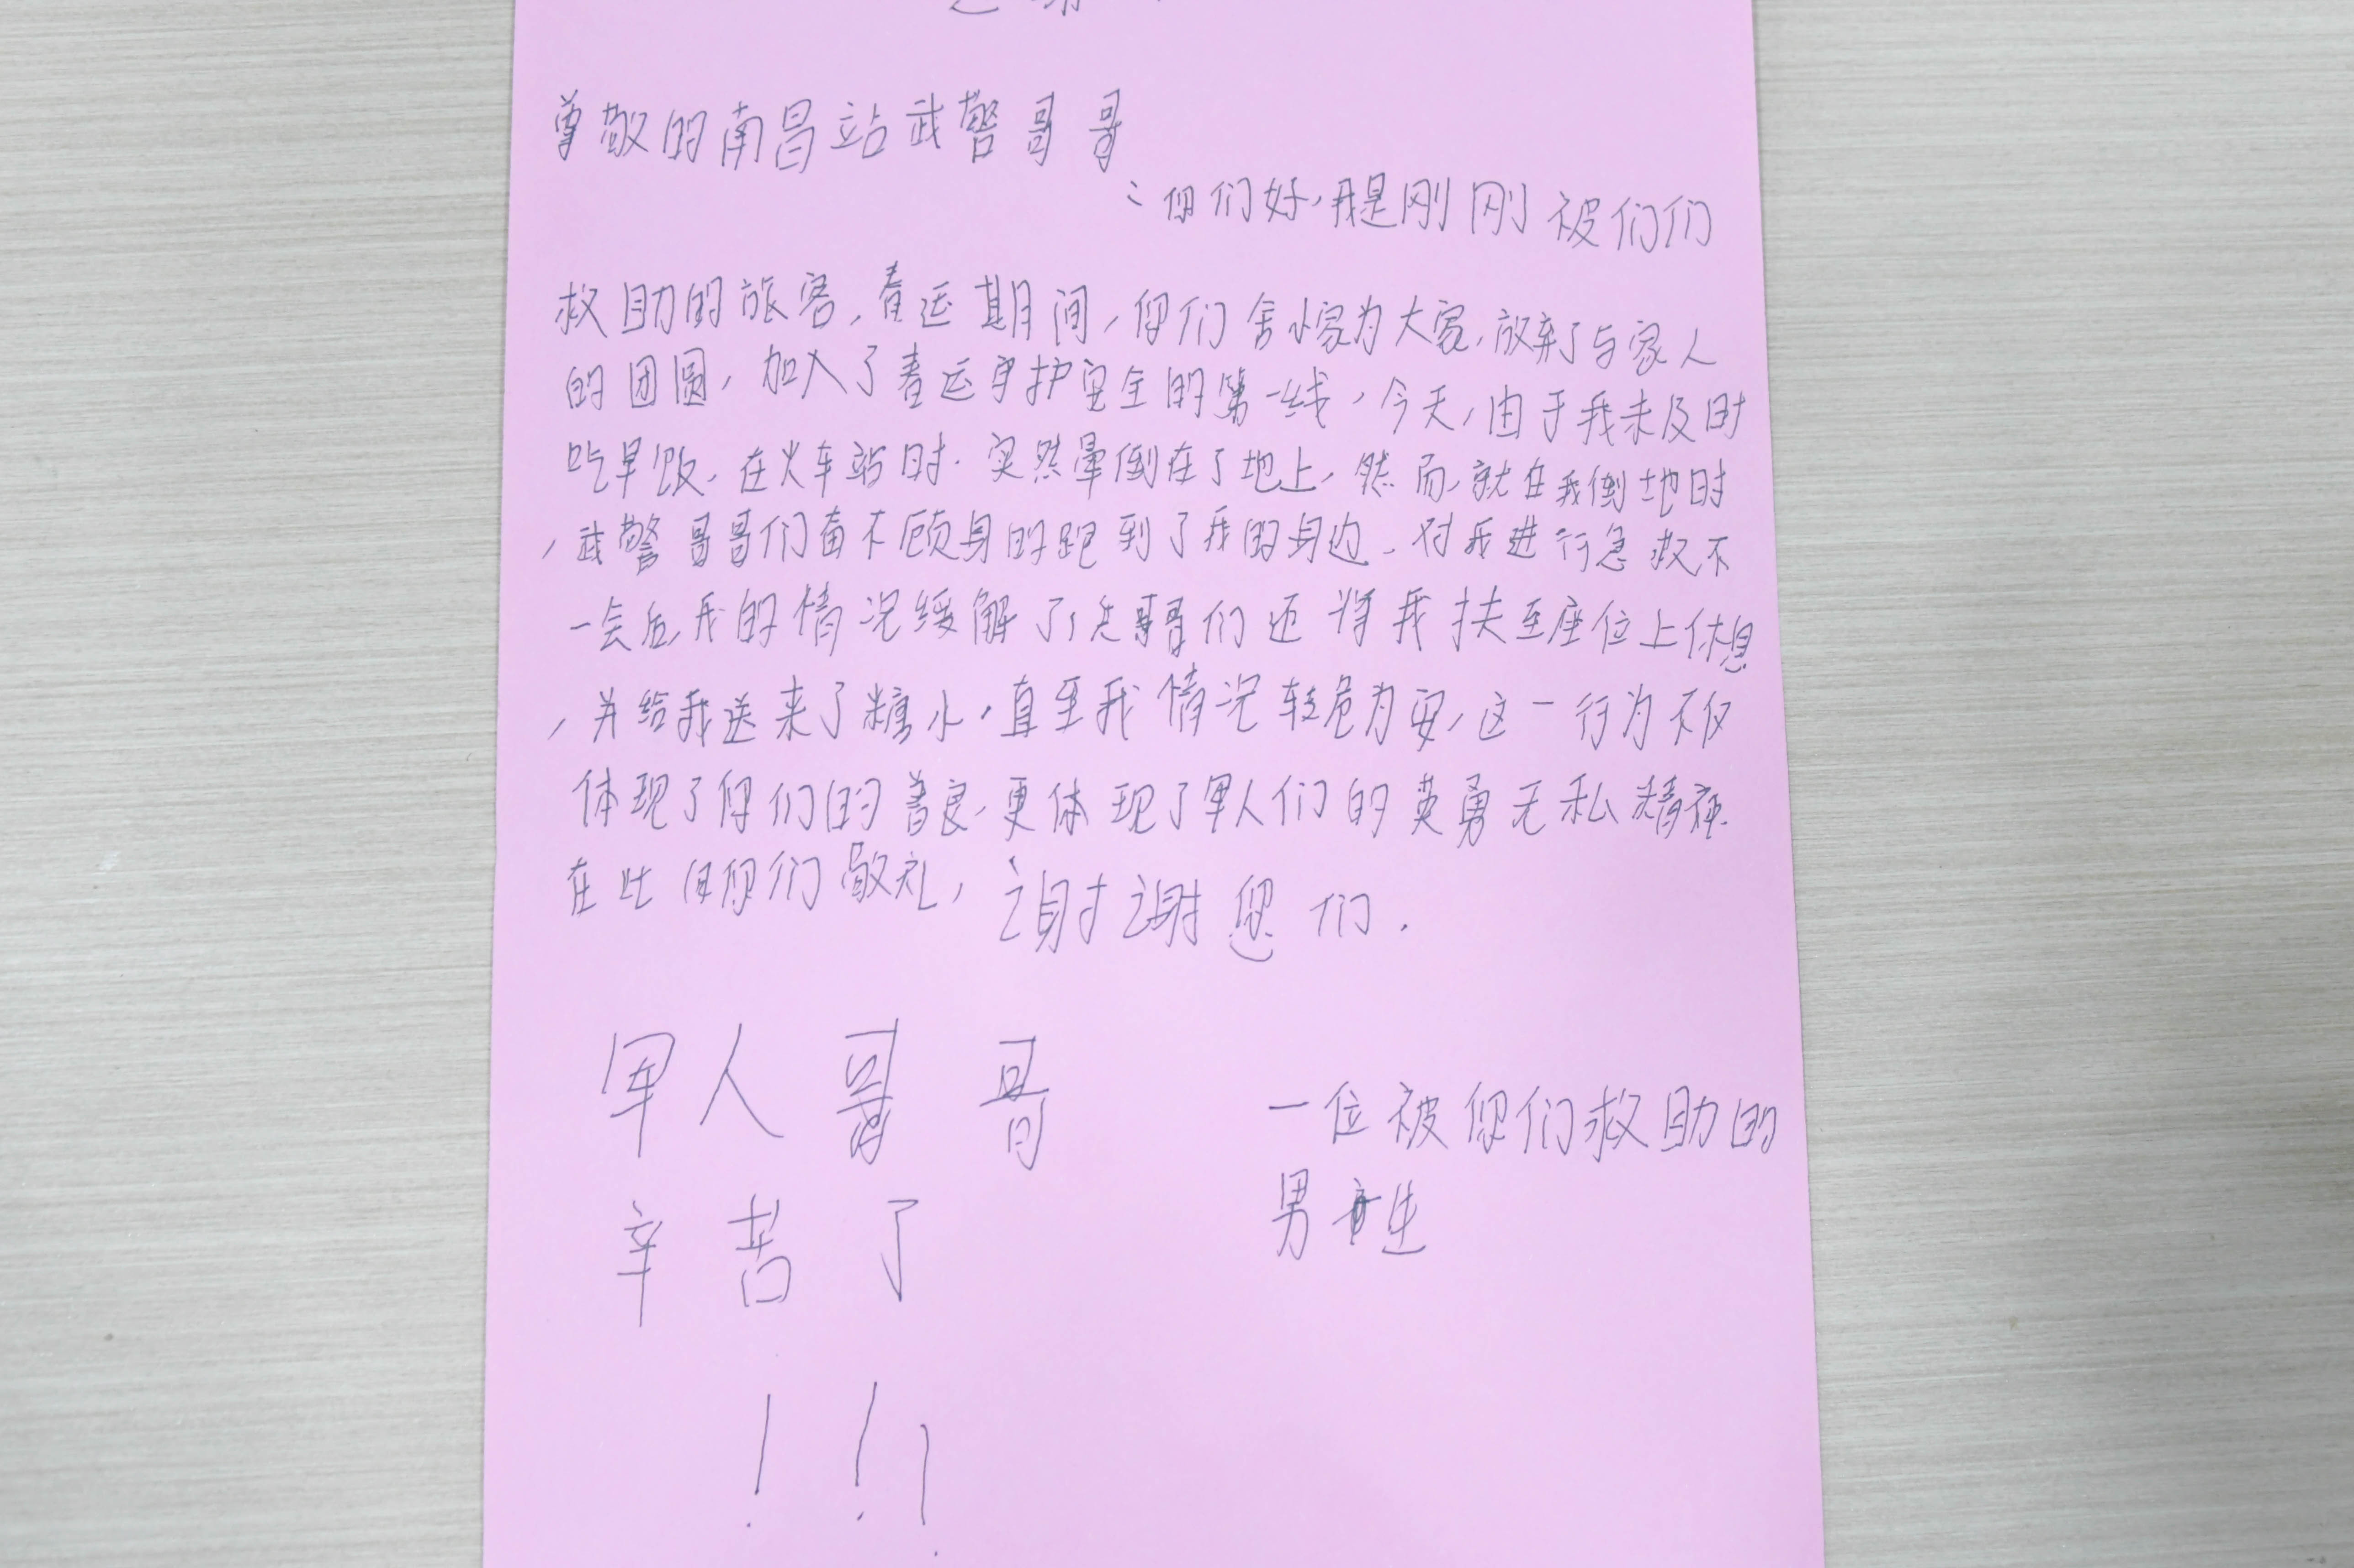 尊敬的南昌站武警哥哥
：你们好，我是刚刚被们们
救助的旅客，春运期间，你们舍小家为大家，放弃了与家人
的团圆，加入了春运守护安全的第一线，今天，由于我未及时
吃早饭，在火车站时，突然晕倒在了地上，然而，就在我倒地时
，武警哥哥们奋不顾身的跑到了我的身边，对我进行急救不
一会后，我的情况缓解了，兵哥哥们还将我扶至座位上休息
，并给我送来了糖水，直至我情况转危为安，这一行为不仅
体现了你们的善良，更体现了军人们的英勇无私精神
在此向你们敬礼，谢谢您们.
军人哥哥
辛苦了
！！！
一位被你们救助的
男性